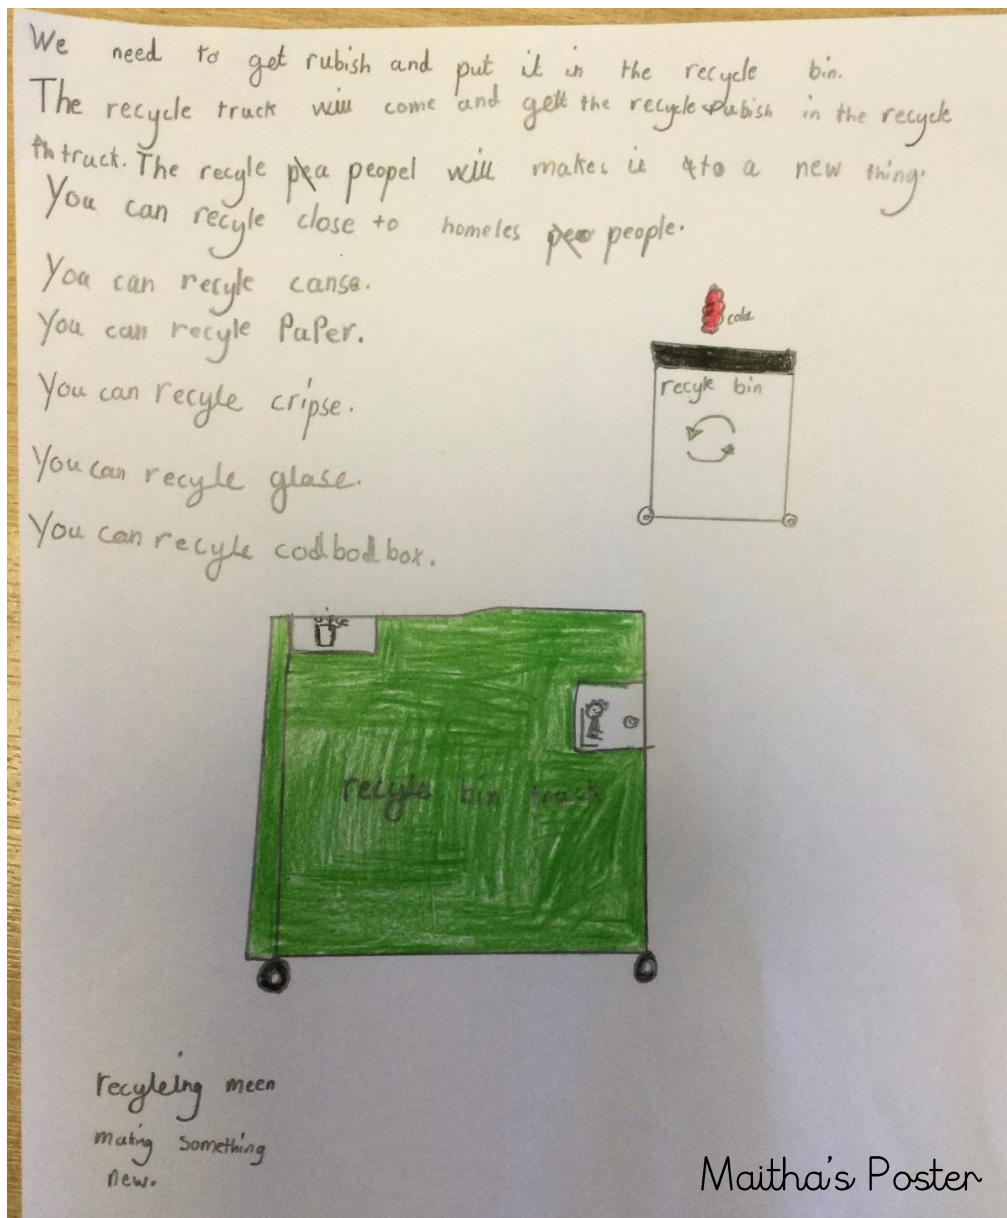 We need to get rubish and put it in the recycle bin.
The recycle truck will come and get the recycle rubish in the recycle
truck. The recyle peopel will makes it to a new thing.
You can recyle close to homeles people.
You can recyle canse.
You can recyle PaPer.
cola
You can recyle cripse.
recyle bin
You can recyle glase.
You can recyle codbodbox.
recyle bin truck
recyleing meen
making something
new.
Maitha's Poster